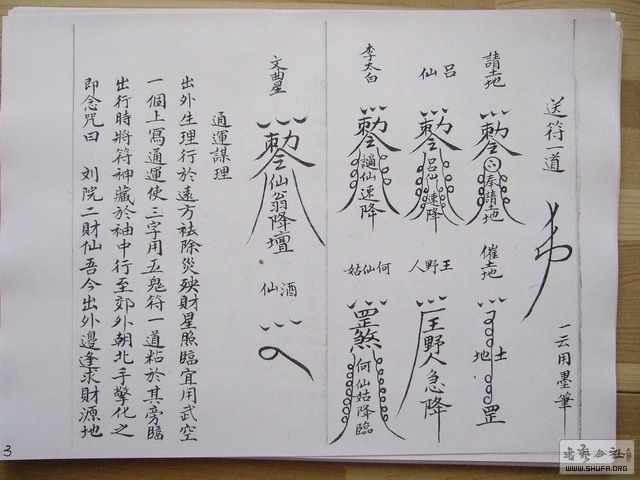 送符一道
一云用墨筆
請土地
勅令奉請土地
催土地
土地罡
呂仙
勅令呂仙速降
王野人
王野人急降
李太白
勅令謫仙速降
何仙姑
罡煞何仙姑降臨
文曲星
勅令仙翁降壇
酒仙
通運謀理
出外生理行於遠方祛除災殃財星照臨宜用武空
一個上寫通運使三字用五鬼符一道粘於其旁臨
出行時將符神藏於袖中行至郊外朝北手擎化之
即念咒曰 刘院二財仙吾今出外邊逢求財源地
3
書藝公社
WWW.SHUFA.ORG